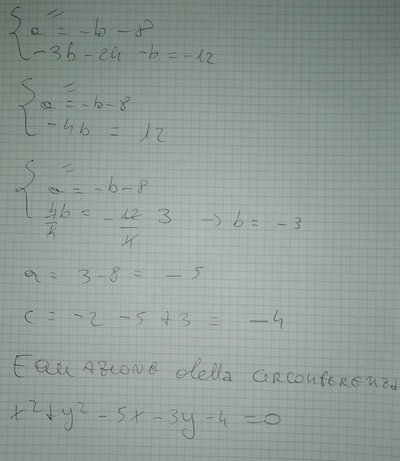 =
a = -b - 8
-3b - 24 - b = -12
=
a = -b - 8
-4b = 12
=
a = -b - 8
4b/4 = -12/4 3 → b = -3
a = 3 - 8 = -5
c = -2 - 5 + 3 = -4
EQUAZIONE della circonferenza
x² + y² - 5x - 3y - 4 = 0